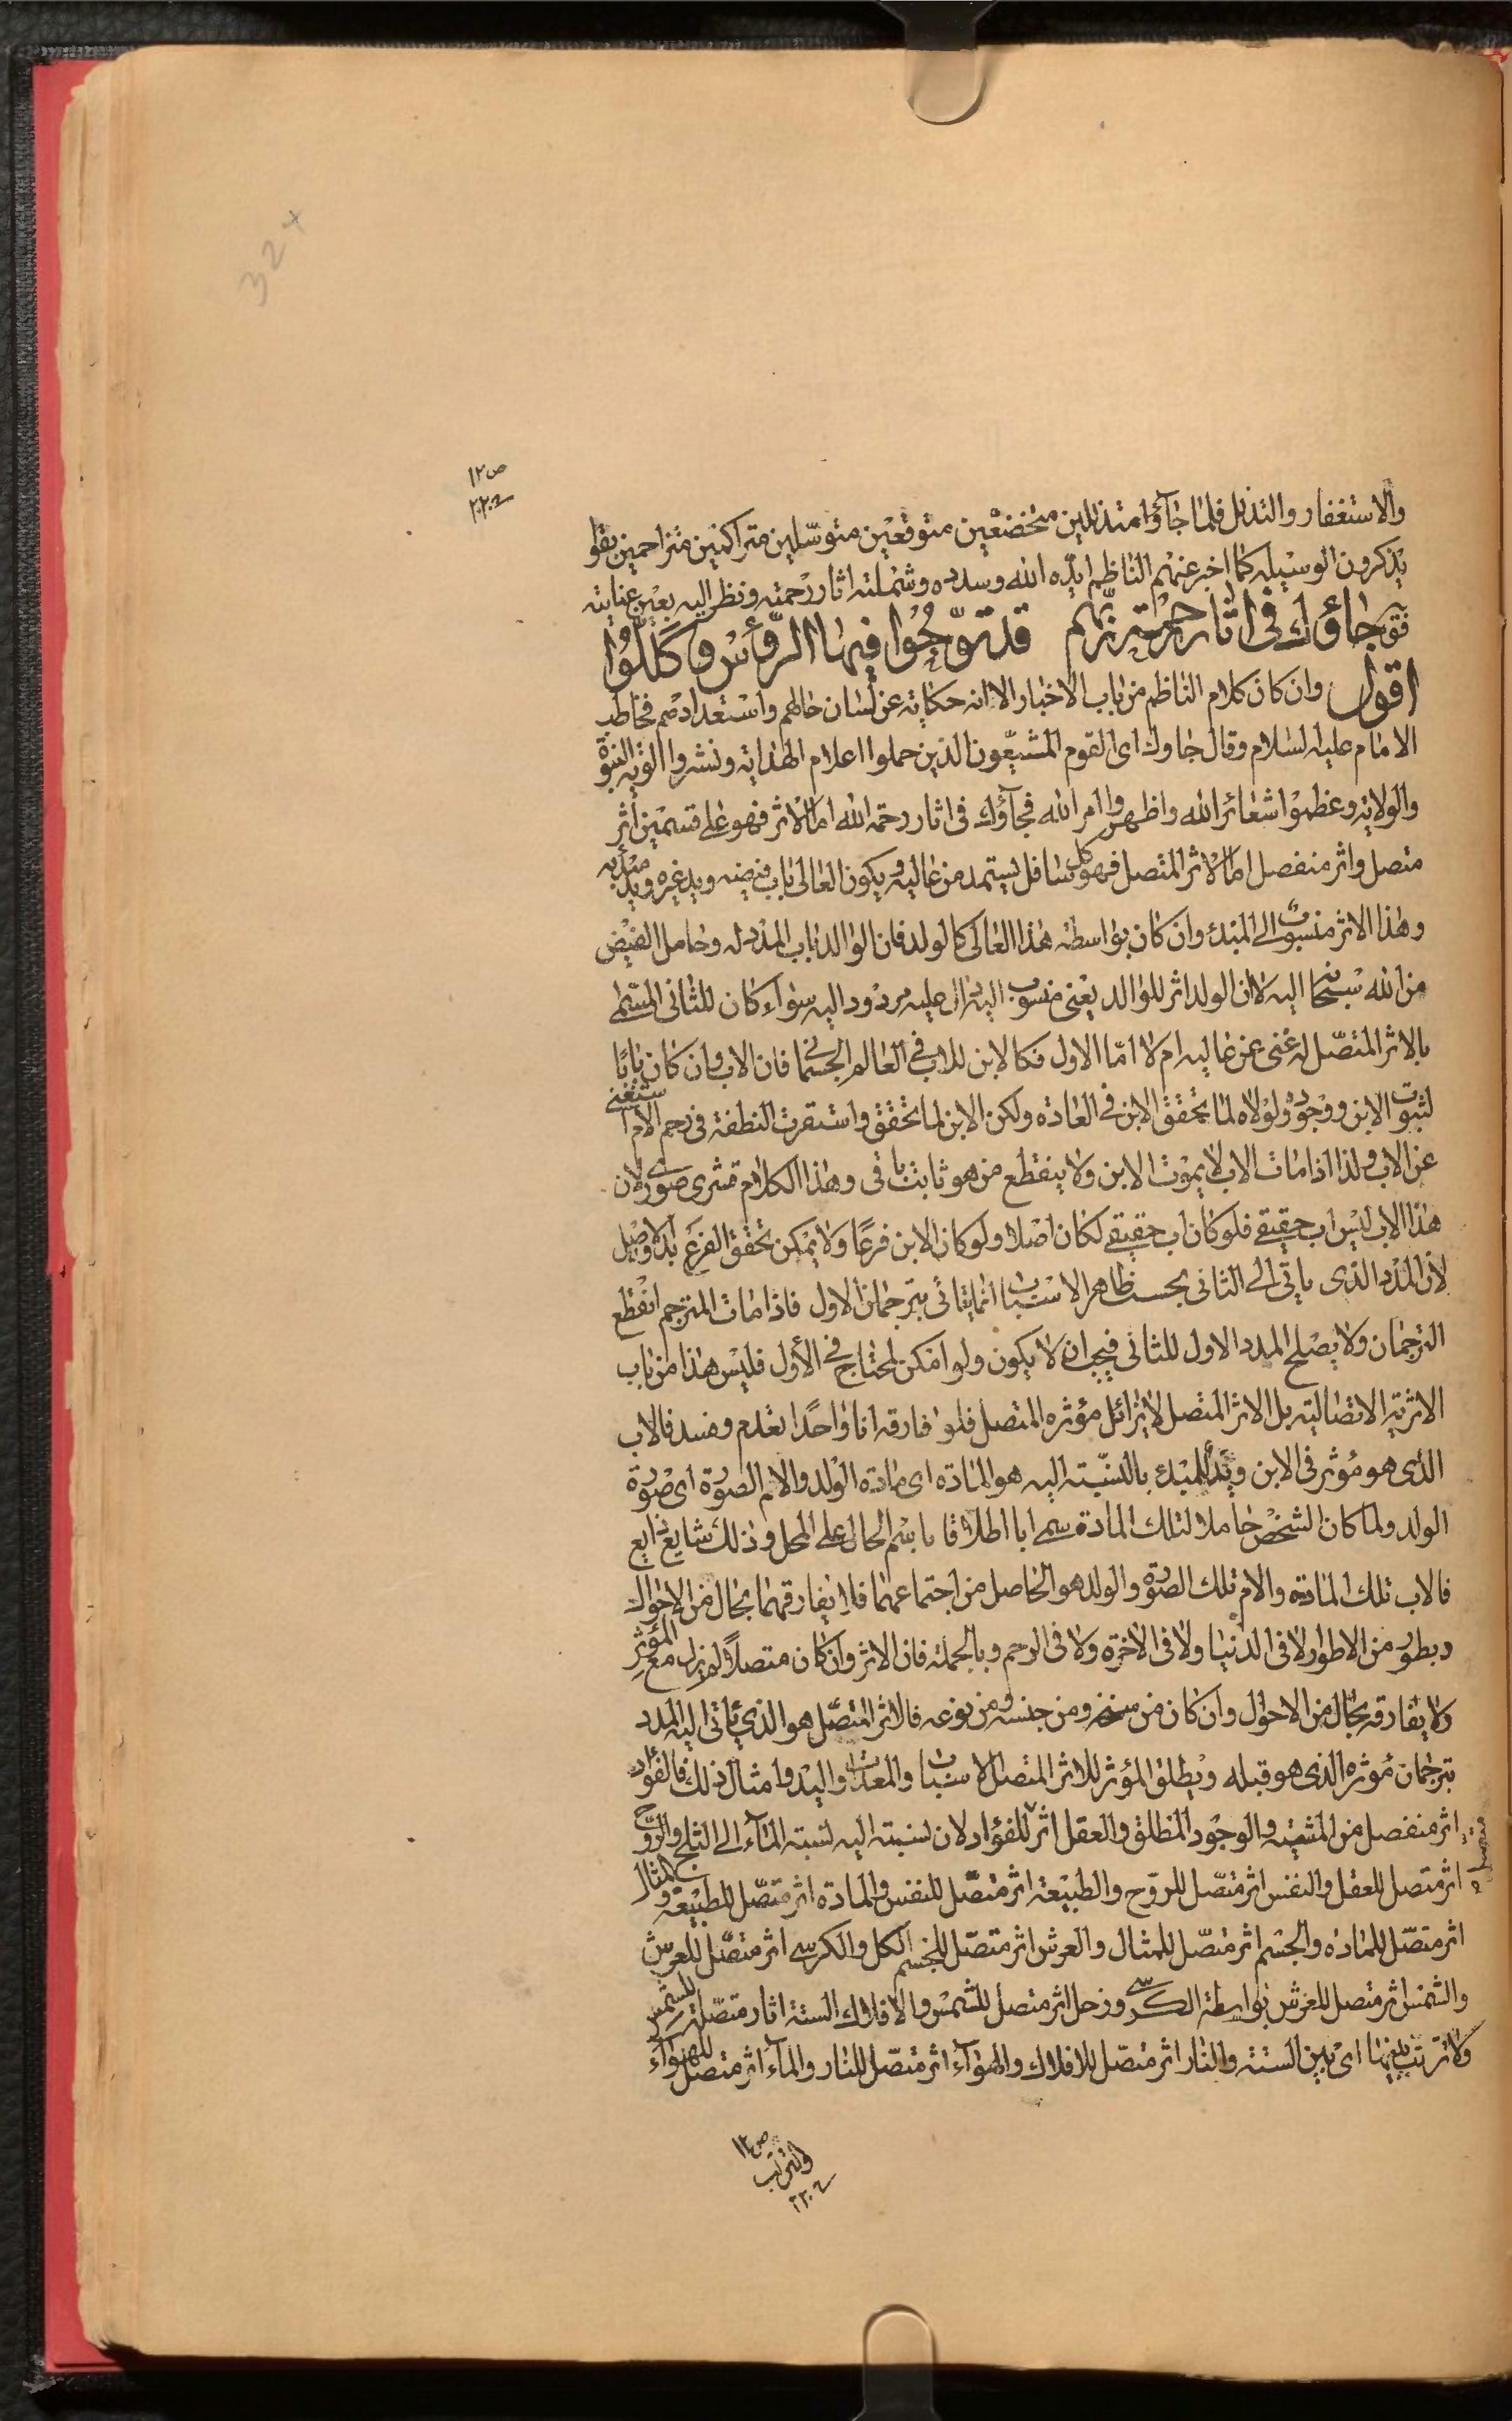 324
ص١٢
٢٢٠٤
والاستغفار والتذلل فلما جاۤؤا متذللين متخضعين متوقعين متوسّلين متراكمين متزاحمين بقوا
يذكرون الوسيله كما اخبر عنهم الناظم ايّده الله وسدده وشملته اثار رحمته ونظر اليه بعين عنايته
جاؤك فى اثار رحمة ربّهم قد توّجُوا فيها الرّؤس وكلّلُوا
اقول وان كان كلام الناظم من باب الاخبار الا انه حكاية عن لسان حالهم واستعدادهم فخاطب
الامام عليه السلام وقال جاوك اى القوم المشيّعون الذين حملوا اعلام الهداية ونشروا الوية النبوة
والولاية وعظموا شعائر الله واظهروا امر الله فجاۤؤك فى اثار رحمة الله اما الاثر فهو على قسمين اثر
متصل واثر منفصل اما الاثر المتصل فهو كل سافل يستمد من عاليه ويكون العالى باب فيضه ويد غيره ويد مبدئه
وهذا الاثر منسوب الى المبدء وان كان بواسطة هذا العالى كالولد فان الوالد باب المدد له وحامل الفيض
من الله سبحانه اليه لان الولد اثر للوالد يعنى منسوب اليه دال عليه مردود اليه سوآء كان للثانى المسمى
بالاثر المتصّل له غنى عن عاليه ام لا امّا الاول فكالابن للاب فى العالم الجسمانى فان الاب وان كان بابًا
لثبوت الابن ووجوده ولولاه لما تحقق الابن فى العادة ولكن الابن لما تحقق واستقرت النطفة فى رحم الام استغنى
عن الاب ولذا اذا مات الاب لا يموت الابن ولا ينقطع من هو ثابت باقى وهذا الكلام قشرى صورى لان
هذا الاب ليس اب حقيقى فلو كان اب حقيقى لكان اصلا ولو كان الابن فرعًا ولا يمكن تحقق الفرع بلا اصل
لان المدد الذى ياتى الى الثانى بحسب ظاهر الاسباب انما يتأتى بترجمان الاول فاذا مات المترجم انقطع
الترجمان ولا يصلح المدد الاول للثانى فيجب ان لا يكون ولو امكن لمحتاج فى الأول فليس هذا من باب
الاثرية الاتصالية بل الاثر المتصل لا يزائل مؤثره المتصل فلو فارقه انا واحدًا انعدم وفسد فالاب
الذى هو مُؤثر فى الابن ويدٌ للمبدء بالنسبة اليه هو المادة اى مادة الولد والام الصورة اى صورة
الولد ولما كان الشخص حاملا لتلك المادة سمى ابا اطلاقا باسم الحال على المحل وذلك شايع ذايع
فالاب تلك المادة والام تلك الصورة والولد هو الحاصل من اجتماعهما فلا يفارقهما بحال من الاحوال
وبطور من الاطوار لا فى الدنيا ولا فى الاخرة ولا فى الرحم وبالجملة فان الاثر وان كان متصلاً لم يزل مع المؤثر
ولا يفارقه بحال من الاحوال وان كان من سنخه ومن جنسه ومن نوعه فالاثر المتصّل هو الذي يأتى اليه المدد
بترجمان مُؤثره الذى هو قبله ويطلق المؤثر للاثر المتصل الاسباب والمعدات واليد وامثال ذلك فالفؤاد
اثر منفصل من المشية والوجود المطلق والعقل اثر متصل للفؤاد لان نسبته اليه نسبة المآء الى الثلج والروح
اثر متصل للعقل والنفس اثر متصّل للروح والطبيعة اثر متصّل للنفس والمادة اثر متصّل للطبيعة والمثال
اثر متصّل للمادة والجسم اثر متصّل للمثال والعرش اثر متصّل للجسم الكل والكرسى اثر متصّل للعرش
والشمس اثر متصل للعرش بواسطة الكرسى وزحل اثر متصل للشمس والافلاك الستة اثار متصّلة للشمس
ولا ترتب بينها اى بين الستة والنار اثر متصّل للافلاك والهوآء اثر متصّل للنار والمآء اثر متصل للهوآء
ص١٢
والتراب
٢٢٠٤